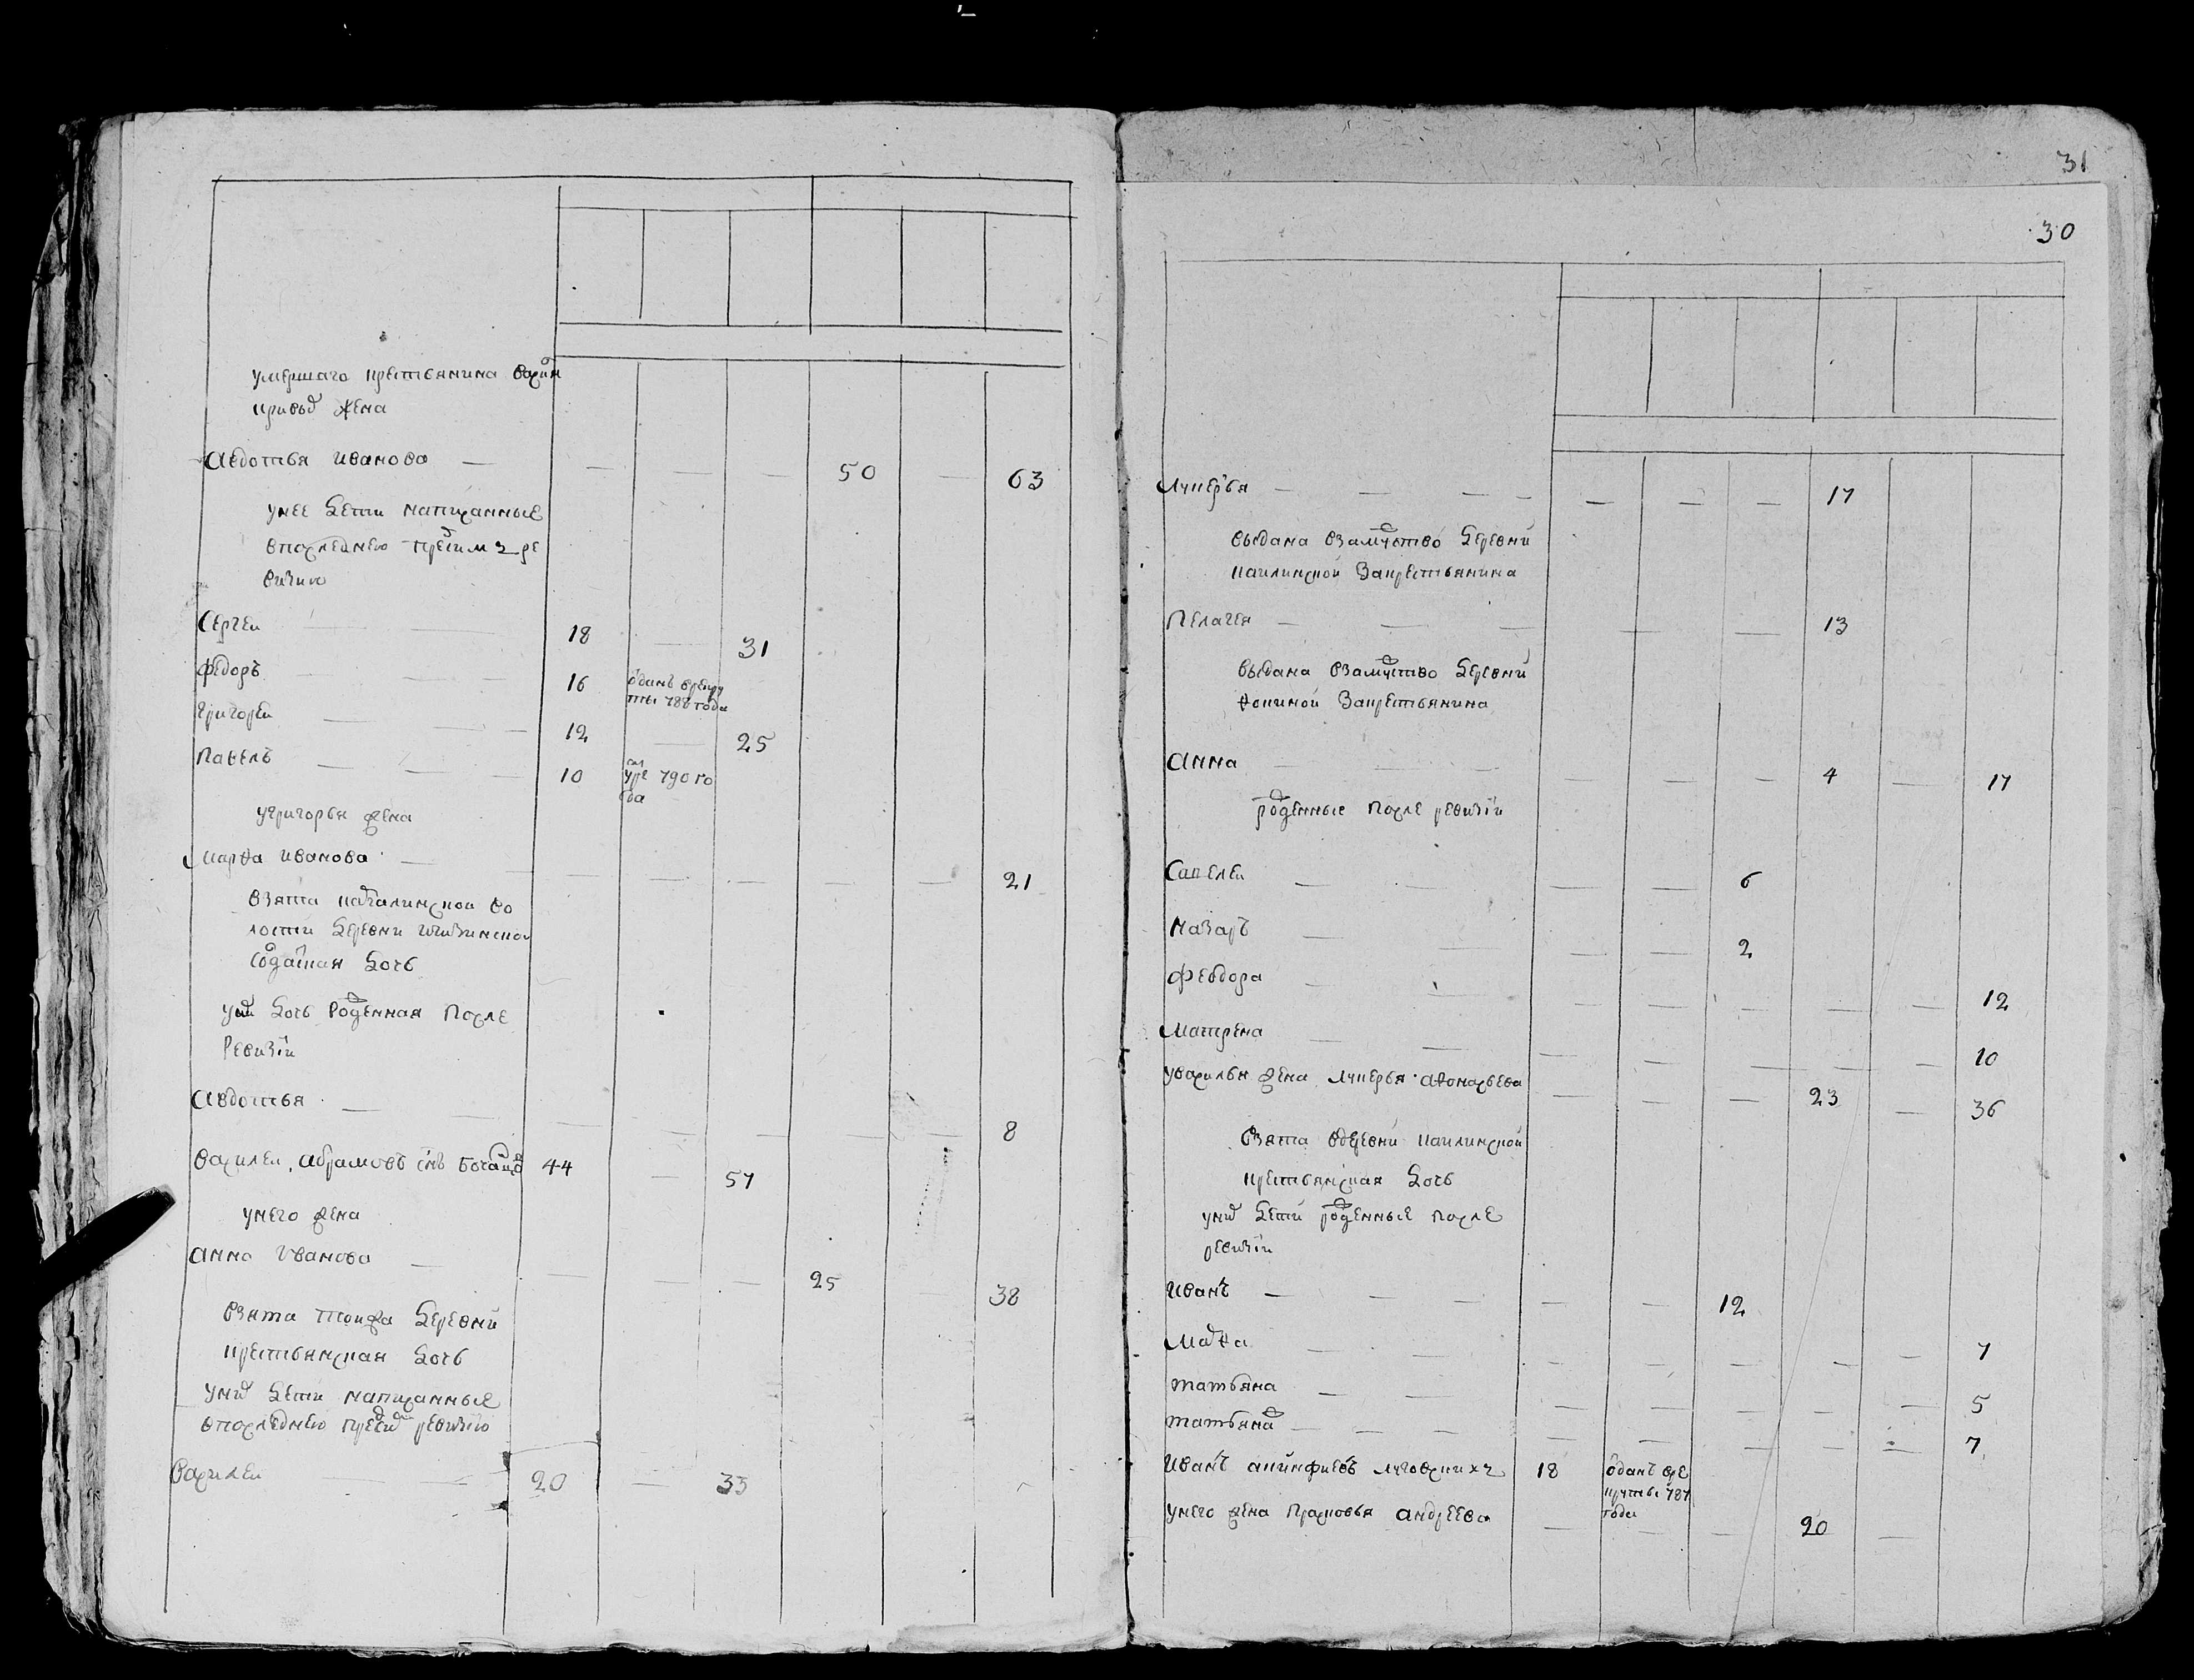 умершаго крестьянина васил
жена
Авдотья Иванова — — — — 50 — 63
унее дети написанные
впоследнею пред сим ре
визию
Сергеи — — 18 — 31
Федоръ — — 16 оданъ врекру
ты 788 года
Григореи — — 12 — 25
Павелъ — — — 10 умре 790 го
да
уГригорья жена
Марфа Иванова — — — — — — 21
взята
лости деревни
солдатская дочь
уних дочь рожденная после
ревизіи
Авдотья — — — — — — — 8
Василеи Абрамовъ снъ 44 — 57
унего жена
Анна Иванова — — — — 25 — 38
взята тоижа деревни
крестьянская дочь
уних дети написанные
впоследнею пред сим ревизию
Василеи — — 20 — 33
31
30
Лукерья — — — — — — — 17
выдана взамужство деревни
каилинской Закрестьянина
Пелагея — — — — — 13
выдана взамужство деревни
фокиной Закрестьянина
Анна — — — — — — 4 — 17
рожденные после ревизіи
Савелеи — — — — 6
Назаръ — — — — 2
Феодора — — — — — — — 12
Матрена — — — — — — — 10
уВасилья жена Лукерья Афонасьева — — — 23 — 36
Взята вдеревни каилинской
крестьянская дочь
уних дети рожденные после
ревизіи
Иванъ — — — — — 12
Марфа — — — — — — — 7
татьяна — — — — — — — 5
татьяна — — — — — — — — 7
Иванъ 18 оданъ вре
круты 787
года
унего жена Прасковья Андреева — — — 20 —